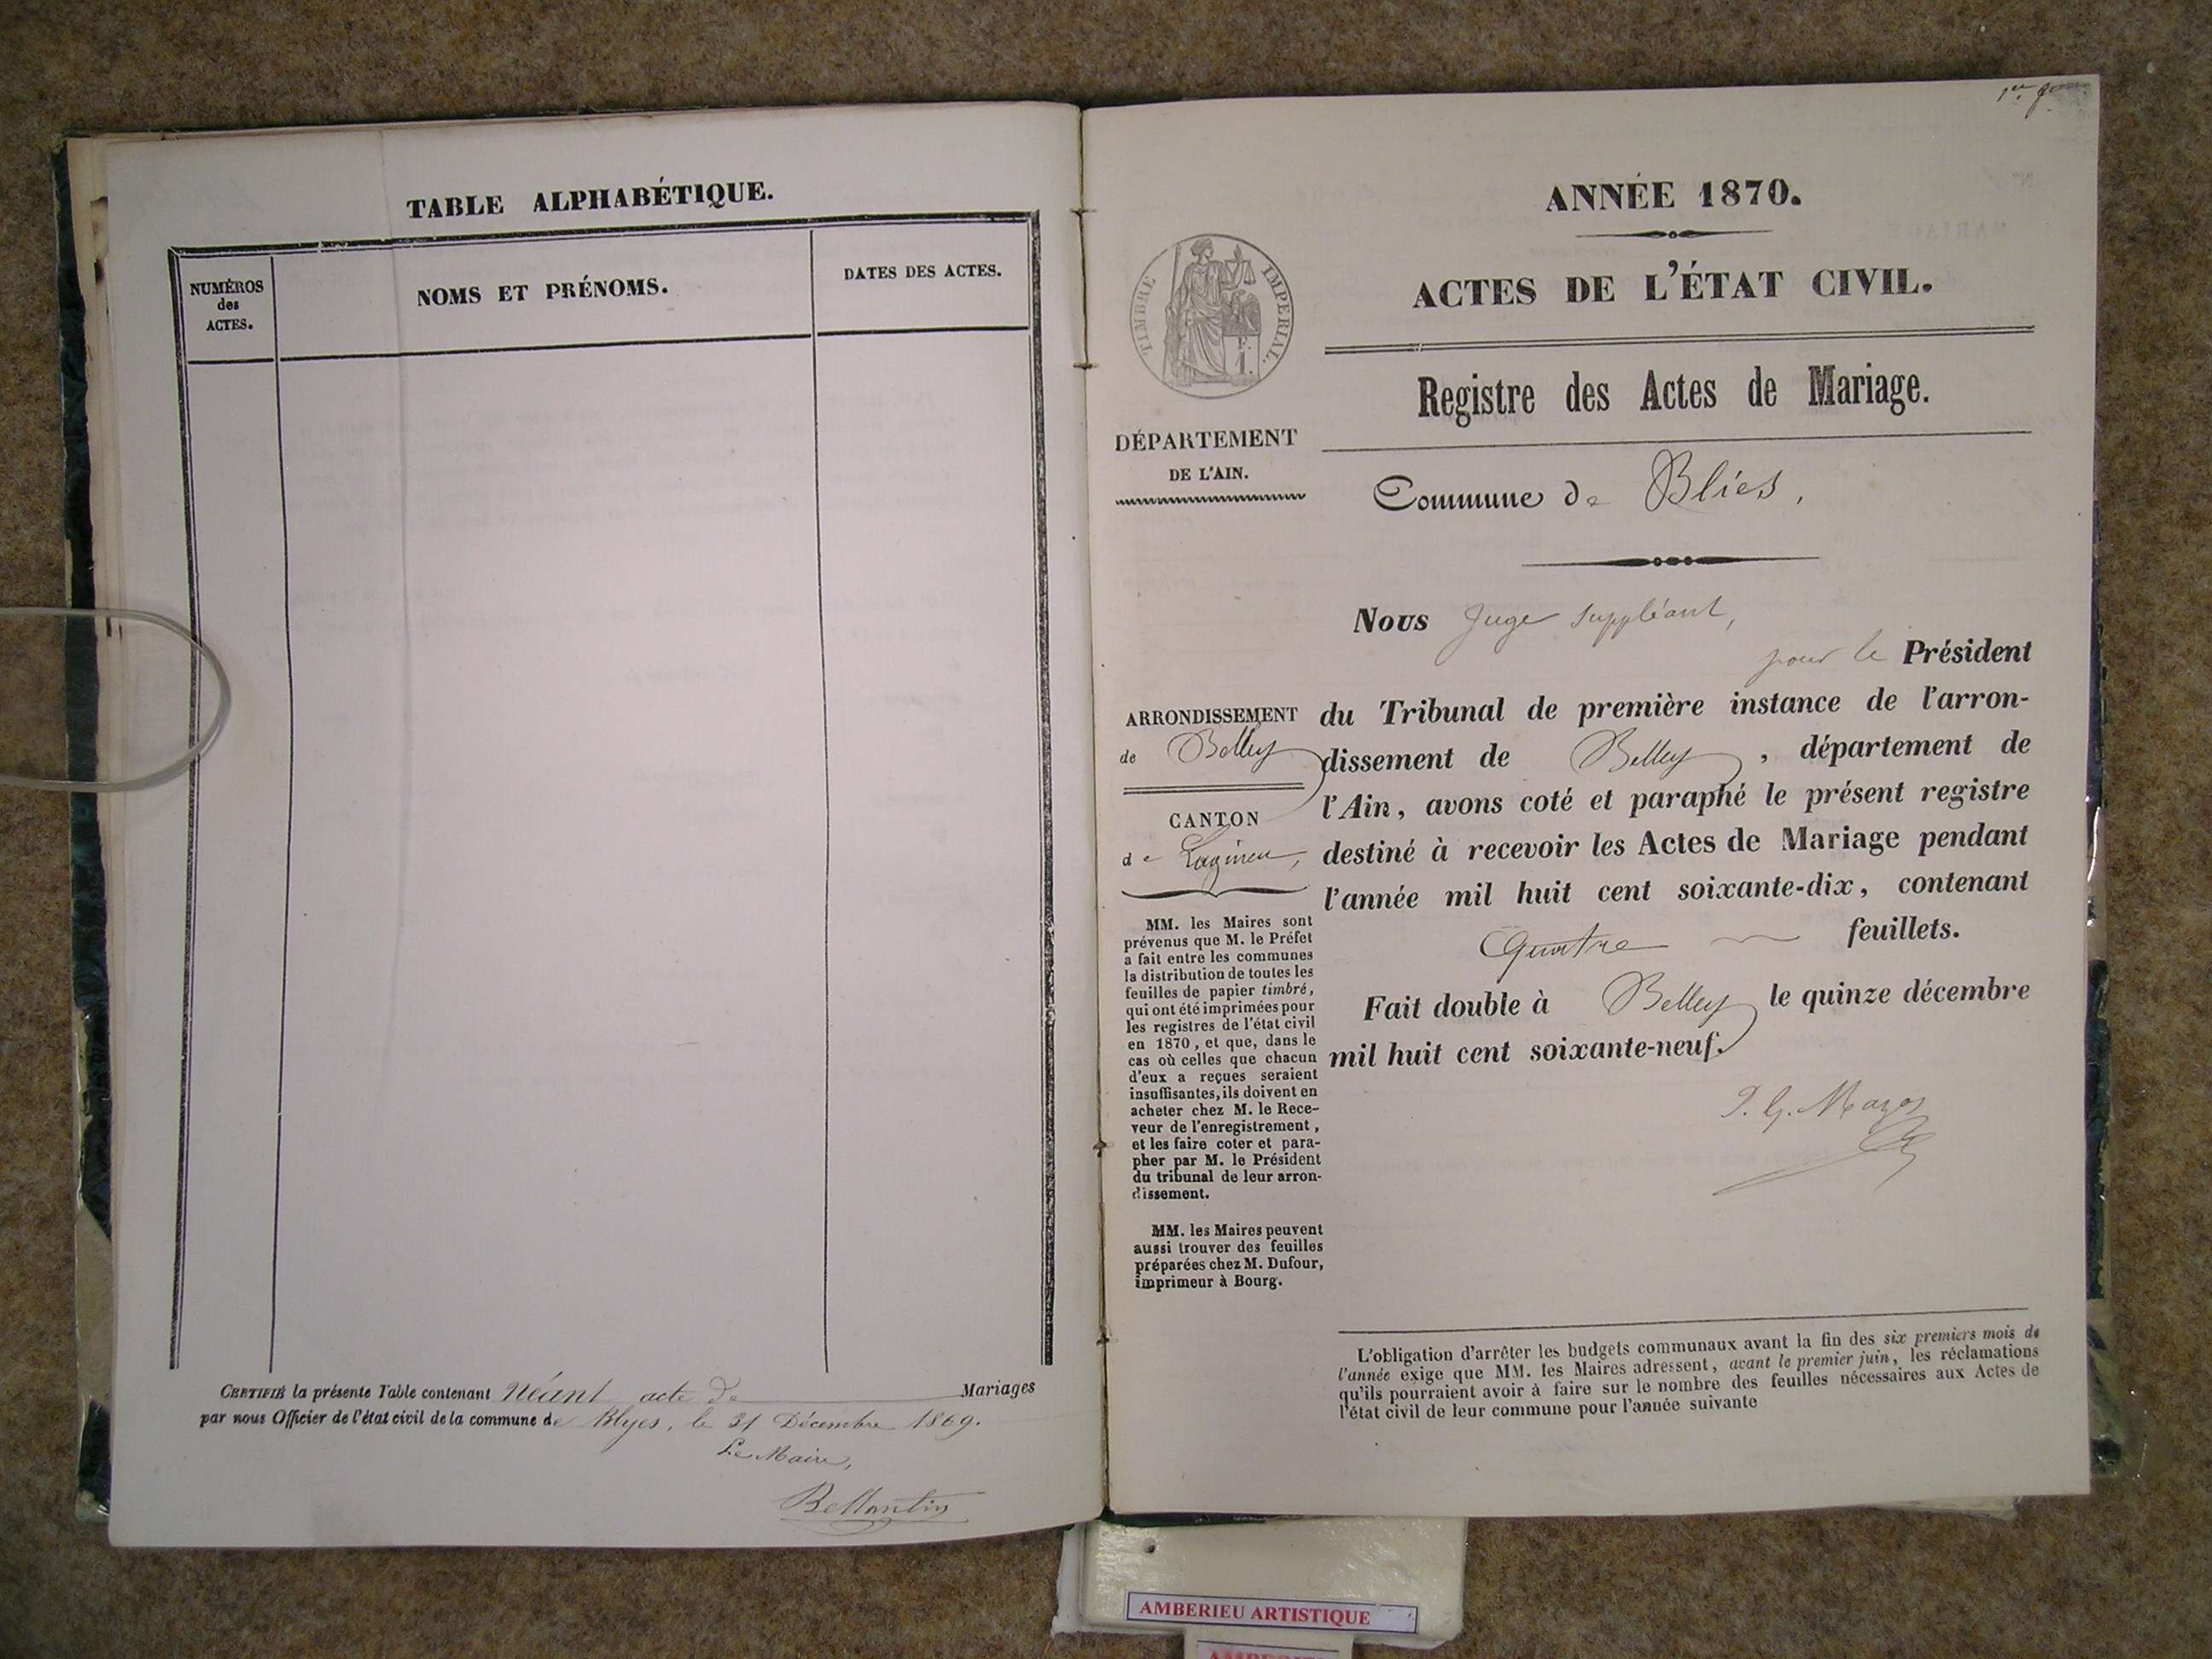 TABLE ALPHABÉTIQUE.
NUMÉROS
des
ACTES.
NOMS ET PRÉNOMS.
DATES DES ACTES.
CERTIFIÉ la présente Table contenant Néant acte de Mariages
par nous Officier de l'état civil de la commune de Blyes, le 31 Décembre 1869.
Le Maire,
Bellantin
1er
ANNÉE 1870.
ACTES DE L'ÉTAT CIVIL.
TIMBRE IMPERIAL.
Registre des Actes de Mariage.
DÉPARTEMENT
DE L'AIN.
Commune de Blies,
Nous Juge suppléant,
pour le Président
ARRONDISSEMENT
de Belley
CANTON
de Lagnieu,
du Tribunal de première instance de l'arron-
dissement de Belley, département de
l'Ain, avons coté et paraphé le présent registre
destiné à recevoir les Actes de Mariage pendant
l'année mil huit cent soixante-dix, contenant
Quatre feuillets.
Fait double à Belley le quinze décembre
mil huit cent soixante-neuf.
MM. les Maires sont
prévenus que M. le Préfet
a fait entre les communes
la distribution de toutes les
feuilles de papier timbré,
qui ont été imprimées pour
les registres de l'état civil
en 1870, et que, dans le
cas où celles que chacun
d'eux a reçues seraient
insuffisantes, ils doivent en
acheter chez M. le Rece-
veur de l'enregistrement,
et les faire coter et para-
pher par M. le Président
du tribunal de leur arron-
dissement.
MM. les Maires peuvent
aussi trouver des feuilles
préparées chez M. Dufour,
imprimeur à Bourg.
L'obligation d'arrêter les budgets communaux avant la fin des six premiers mois de
l'année exige que MM. les Maires adressent, avant le premier juin, les réclamations
qu'ils pourraient avoir à faire sur le nombre des feuilles nécessaires aux Actes de
l'état civil de leur commune pour l'année suivante
AMBERIEU ARTISTIQUE